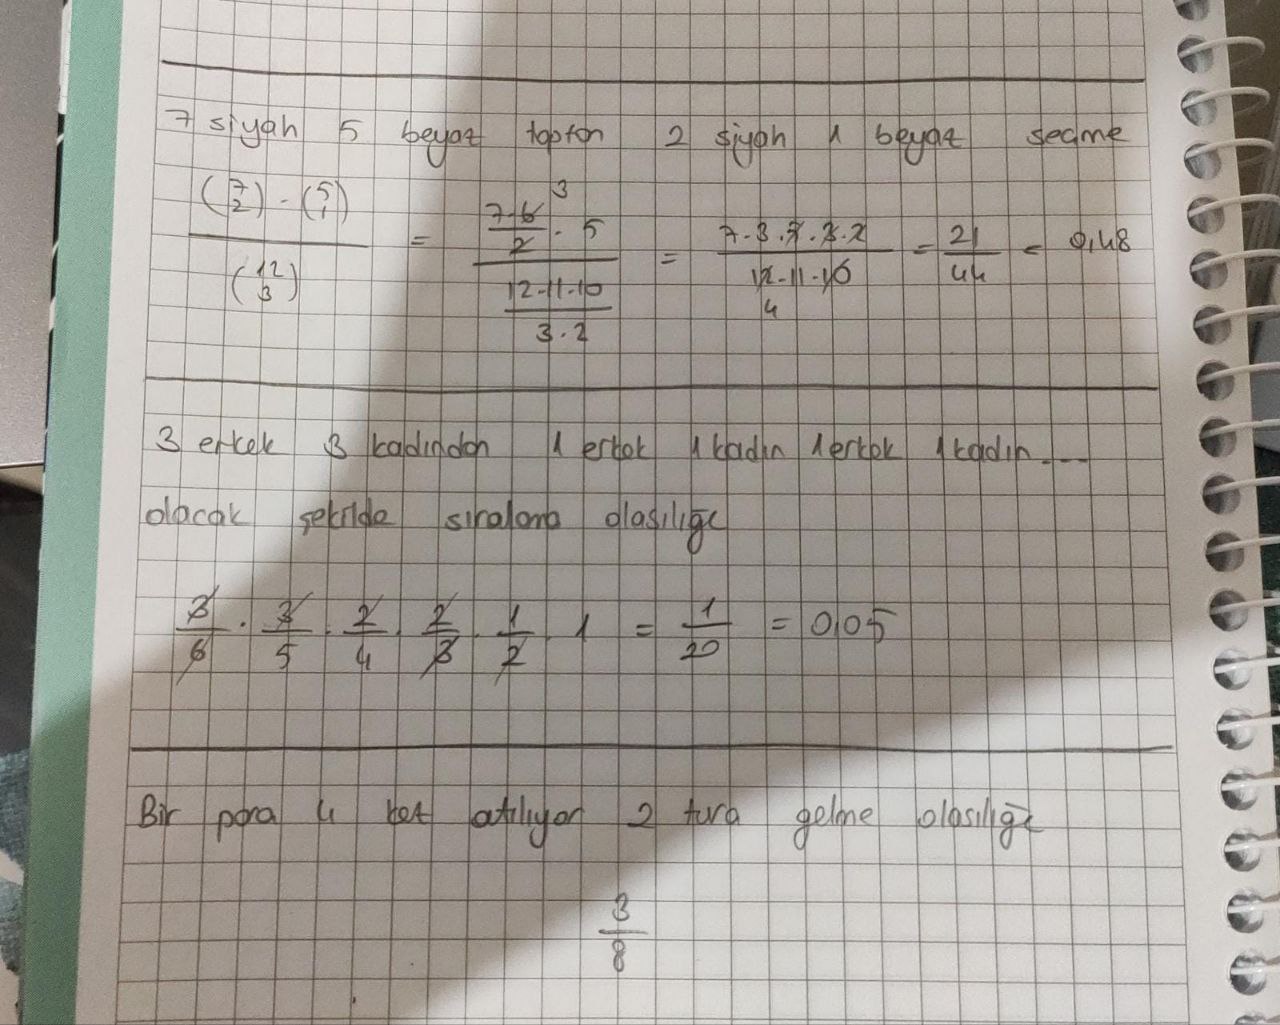 7 siyah 5 beyaz toptan 2 siyah 1 beyaz seçme
(7 2) - (5 1) / (12 3) = (7·6/2 · 5) / (12·11·10 / 3·2) 3 = 7·3·5·3·2 / 12·11·10 4 = 21/44 = 0,48
3 erkek 3 kadından 1 erkek 1 kadın 1 erkek 1 kadın....
olacak şekilde sıralama olasılığı
3/6 · 3/5 · 2/4 · 2/3 · 1/2 · 1 = 1/20 = 0,05
Bir para 4 kez atılıyor 2 tura gelme olasılığı
3/8